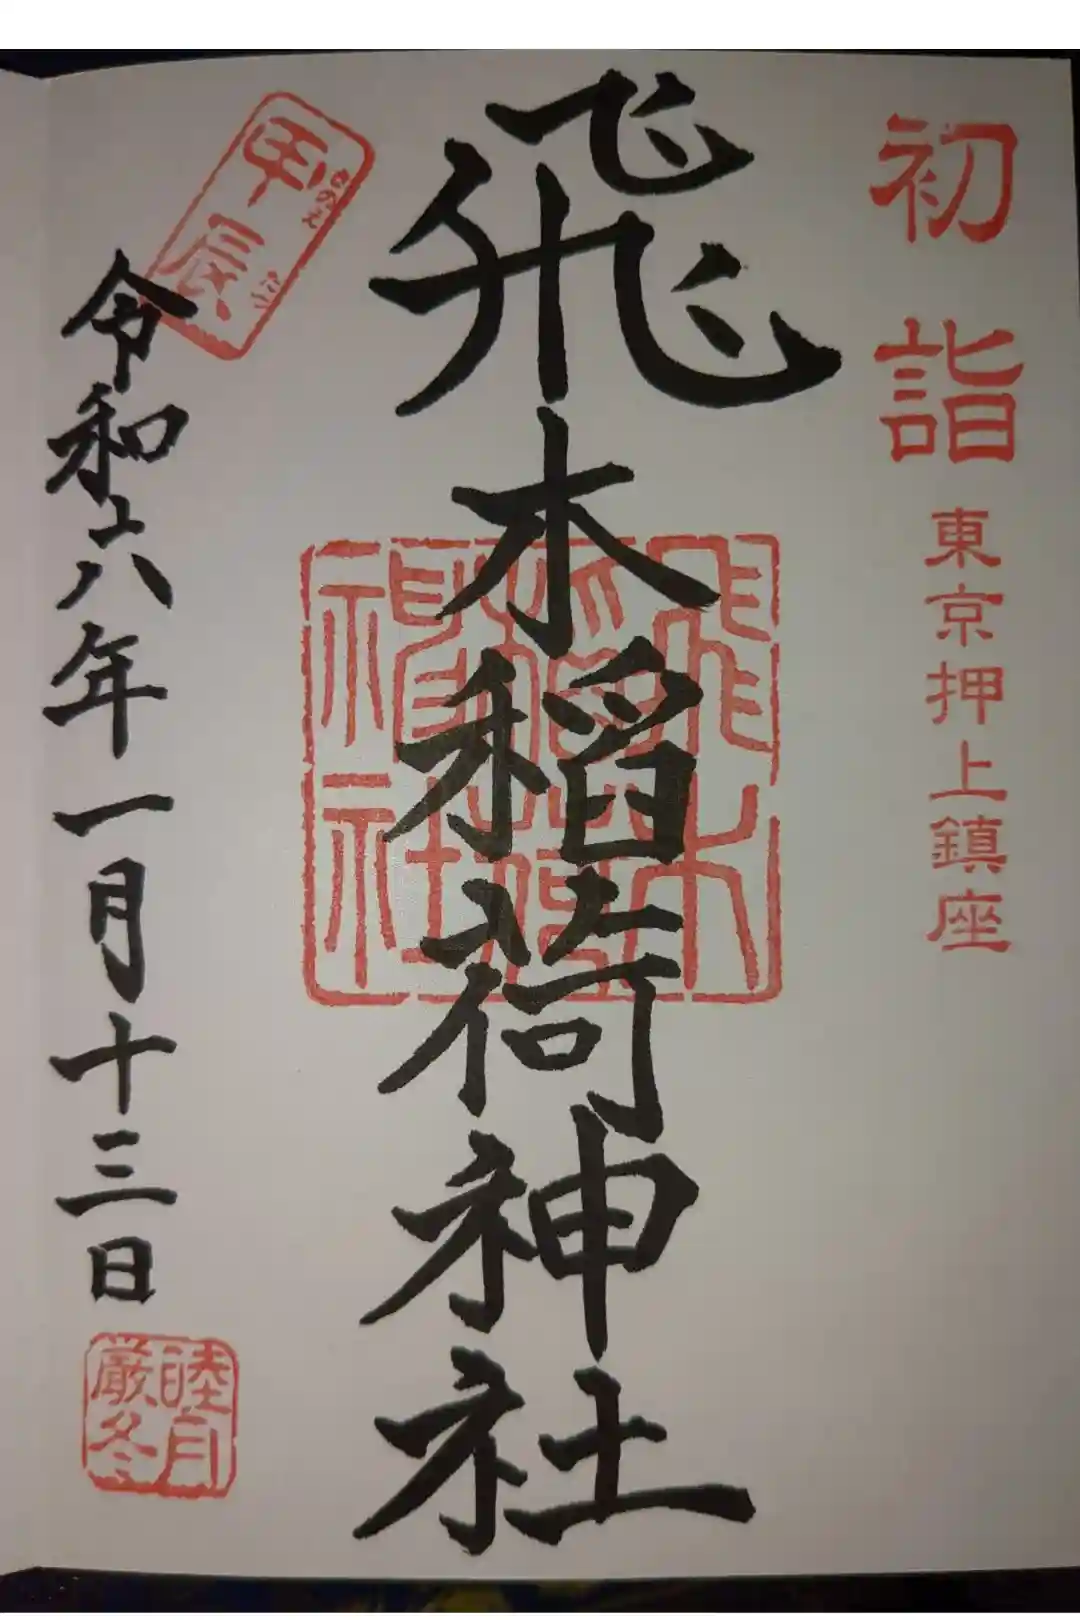 初詣
東京押上鎮座
飛木稲荷神社
飛木稲荷神社
甲辰
きのえ
たつ
令和六年一月十三日
睦月
厳冬